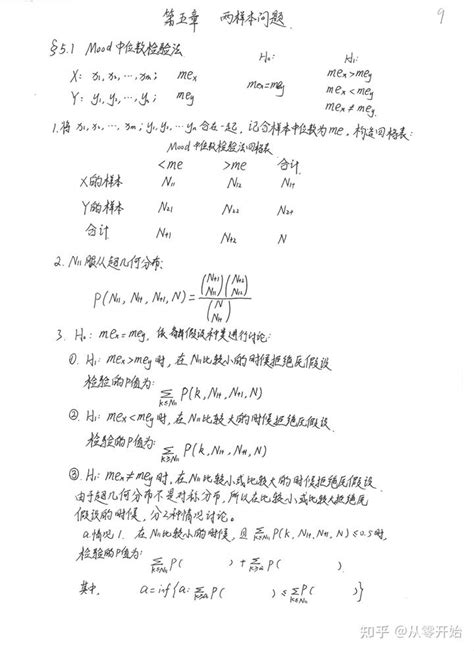 第五章 两样本问题. 9
§5.1 Mood中位数检验法 H₀: H₁:
X: x₁, x₂, ⋯, xₘ; meₓ meₓ=me_y meₓ>me_y
Y: y₁, y₂, ⋯, yₙ; me_y meₓ<me_y
meₓ≠me_y
1.将x₁,x₂,⋯,xₘ; y₁,y₂,⋯yₙ合在一起, 记合样本中位数为me. 构造四格表:
Mood中位数检验法四格表
<me >me 合计
X的样本 N₁₁ N₁₂ N₁₊
Y的样本 N₂₁ N₂₂ N₂₊
合计 N₊₁ N₊₂ N
2. N₁₁服从超几何分布:
P(N₁₁, N₁₊, N₊₁, N) = (N₊₁ N₁₁)(N₊₂ N₁₂) / (N N₁₊)
3. H₀: meₓ=me_y, 假设种类进行讨论:
①. H₁: meₓ>me_y时, 在N₁₁比较小的时候拒绝原假设
检验的P值为: Σ_{k≤N₁₁} P(k, N₁₊, N₊₁, N)
②. H₁: meₓ<me_y时, 在N₁₁比较大的时候拒绝原假设.
检验的P值为: Σ_{k≥N₁₁} P(k, N₁₊, N₊₁, N)
③ H₁: meₓ≠me_y时, 在N₁₁比较小或比较大的时候拒绝原假设
由于超几何分布不是对称分布, 所以在比较小或比较大拒绝原
假设的时候, 分2种情况讨论。
a.情况1. 在N₁₁比较小的时候, 且 Σ_{k≤N₁₁} P(k, N₁₊, N₊₁, N) ≤0.5时,
检验的P值为:
Σ_{k≤N₁₁} P( ) + Σ_{k≥a} P( ).
其中, a=inf{a: Σ_{k≥a} P( ) ≤ Σ_{k≤N₁₁} P( )}
知乎 @从零开始